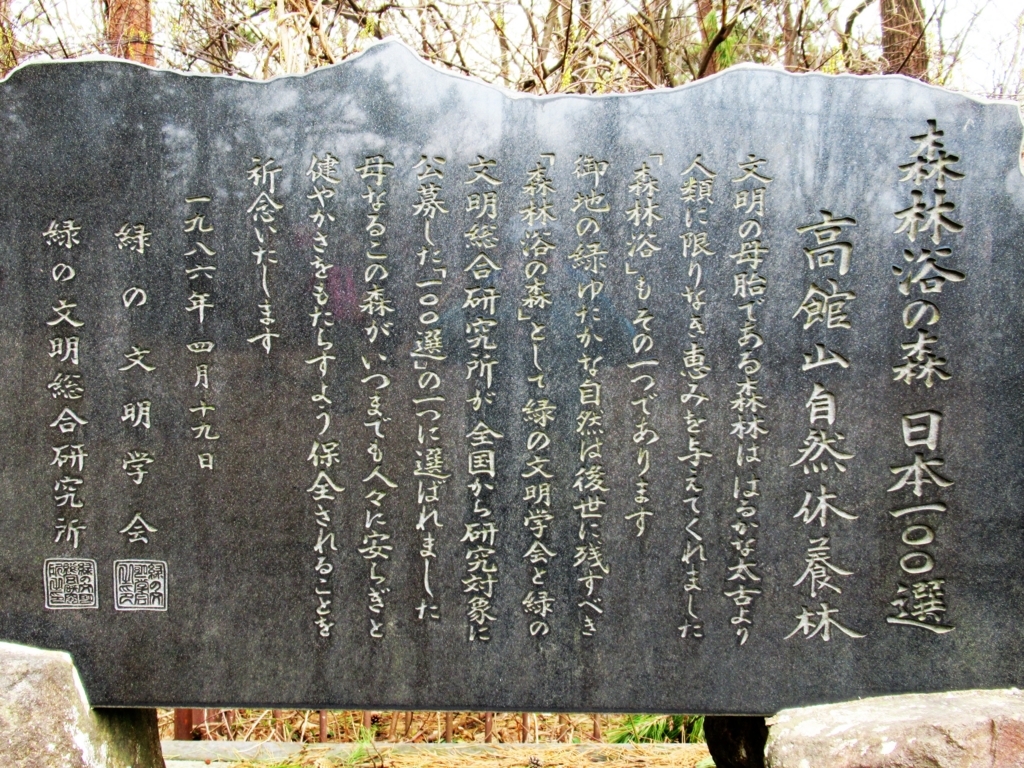 森林浴の森 日本一〇〇選
高館山自然休養林
文明の母胎である森林ははるかな太古より
人類に限りなき恵みを与えてくれました
「森林浴」もその一つであります
御地の緑ゆたかな自然は後世に残すべき
「森林浴の森」として緑の文明学会と緑の
文明総合研究所が全国から研究対象に
公募した「一〇〇選」の一つに選ばれました
母なるこの森がいつまでも人々に安らぎと
健やかさをもたらすよう保全されることを
祈念いたします
一九八六年 四月十九日
緑の文明学会
緑の文明総合研究所